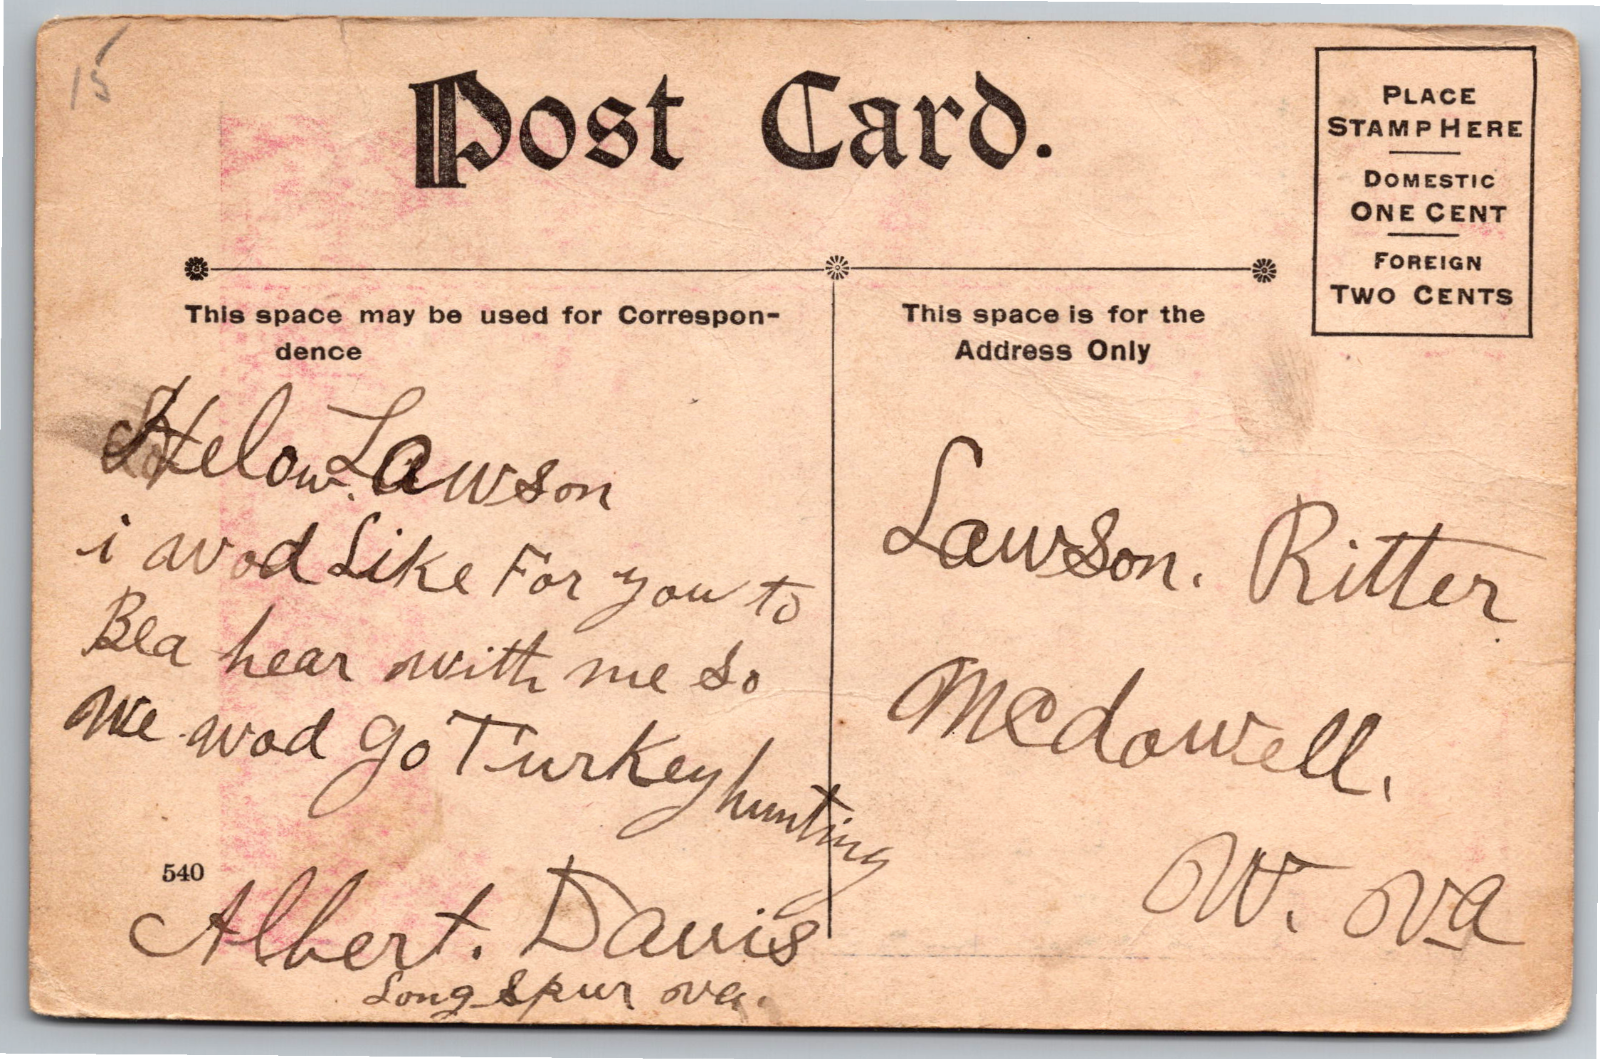 15
Post Card.
PLACE
STAMP HERE
DOMESTIC
ONE CENT
FOREIGN
TWO CENTS
This space may be used for Correspon-
dence
This space is for the
Address Only
Helow. Lawson
i wod Like For you to
Bea hear with me so
We wod go Turkey hunting
540
Albert. Davis
Long Spur va.
Lawson. Ritter
Mcdowell.
W. Va